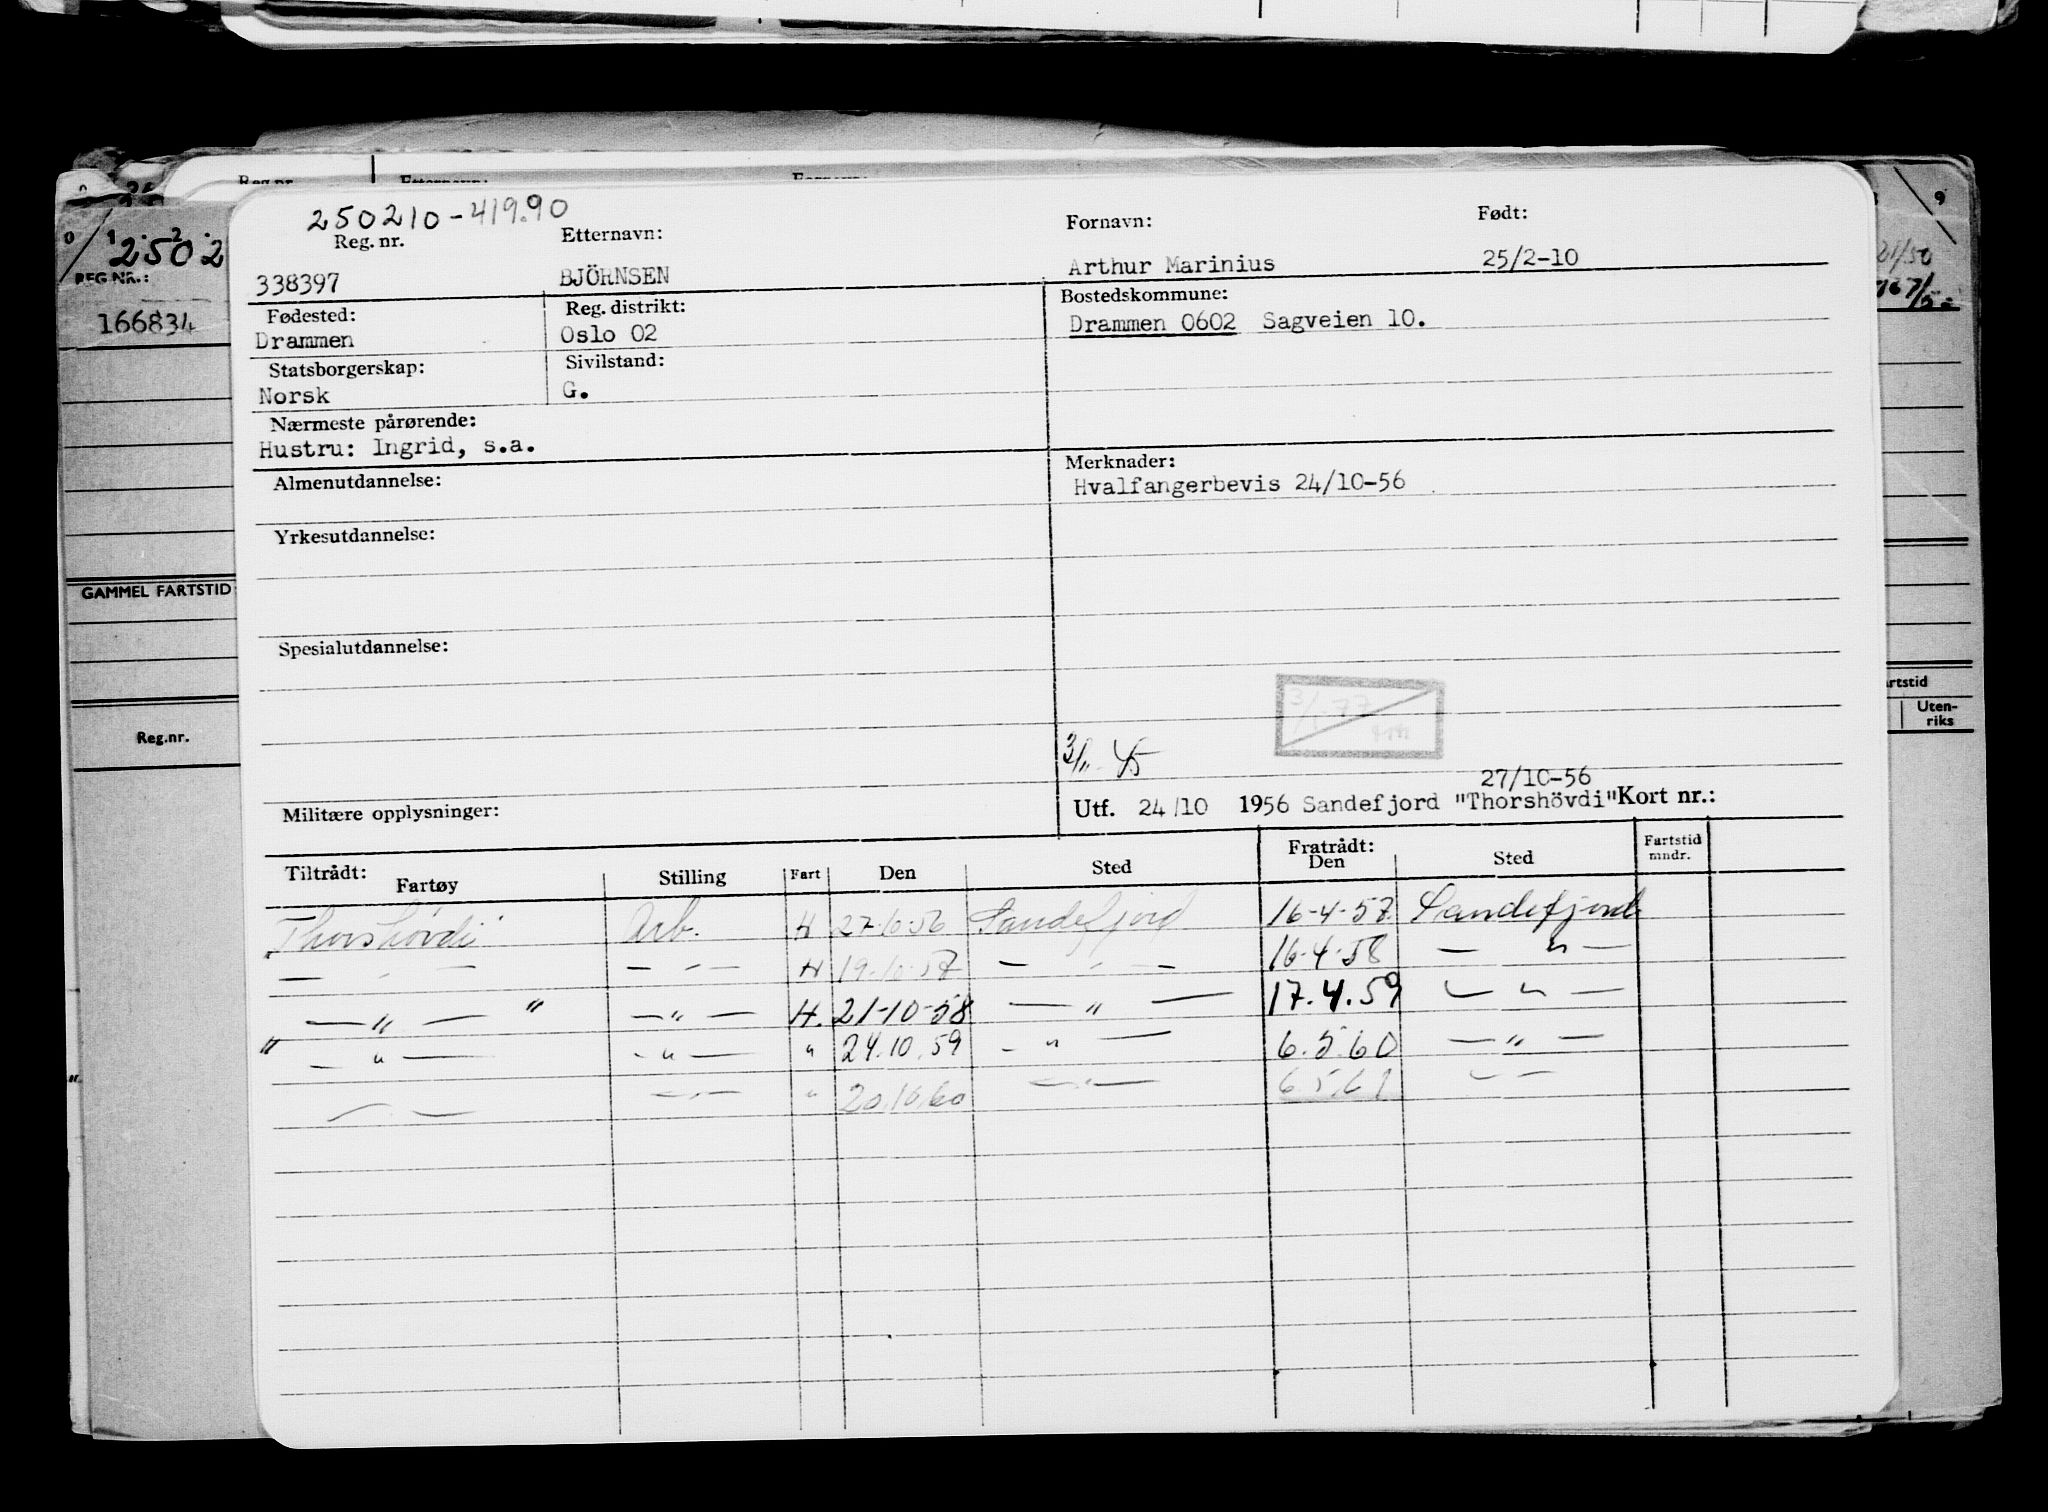 250210-419.90
Reg. nr. Etternavn: Fornavn: Født:
338397 BJÖRNSEN Arthur Marinius 25/2-10
Fødested: Reg. distrikt: Bostedskommune:
Drammen Oslo 02 Drammen 0602 Sagveien 10.
Statsborgerskap: Sivilstand:
Norsk G.
Nærmeste pårørende:
Hustru: Ingrid, s.a.
Almenutdannelse: Merknader:
Hvalfangerbevis 24/10-56
Yrkesutdannelse:
Spesialutdannelse:
27/10-56
Militære opplysninger: Utf. 24/10 1956 Sandefjord "Thorshövdi" Kort nr.:
Tiltrådt: Fratrådt: Fartstid
Fartøy Stilling Fart Den Sted Den Sted mndr.
"Thorshövdi" Arb. H 27-10-56 Sandefjord 16-4-57 Sandefjord
— " — — " — H 19-10-57 — " — 16-4-58 — " —
— " — " — " — H. 21-10-58 — " — 17.4.59 — " —
" — " — — " — " 24.10.59 — " — 6.5.60 — " —
— — — " — " 20.10.60 — " — 6.5.61 — —
0 1 2
2502
REG. NR.:
166834
GAMMEL FARTSTID
Reg.nr.
9
artstid
Uten-
riks